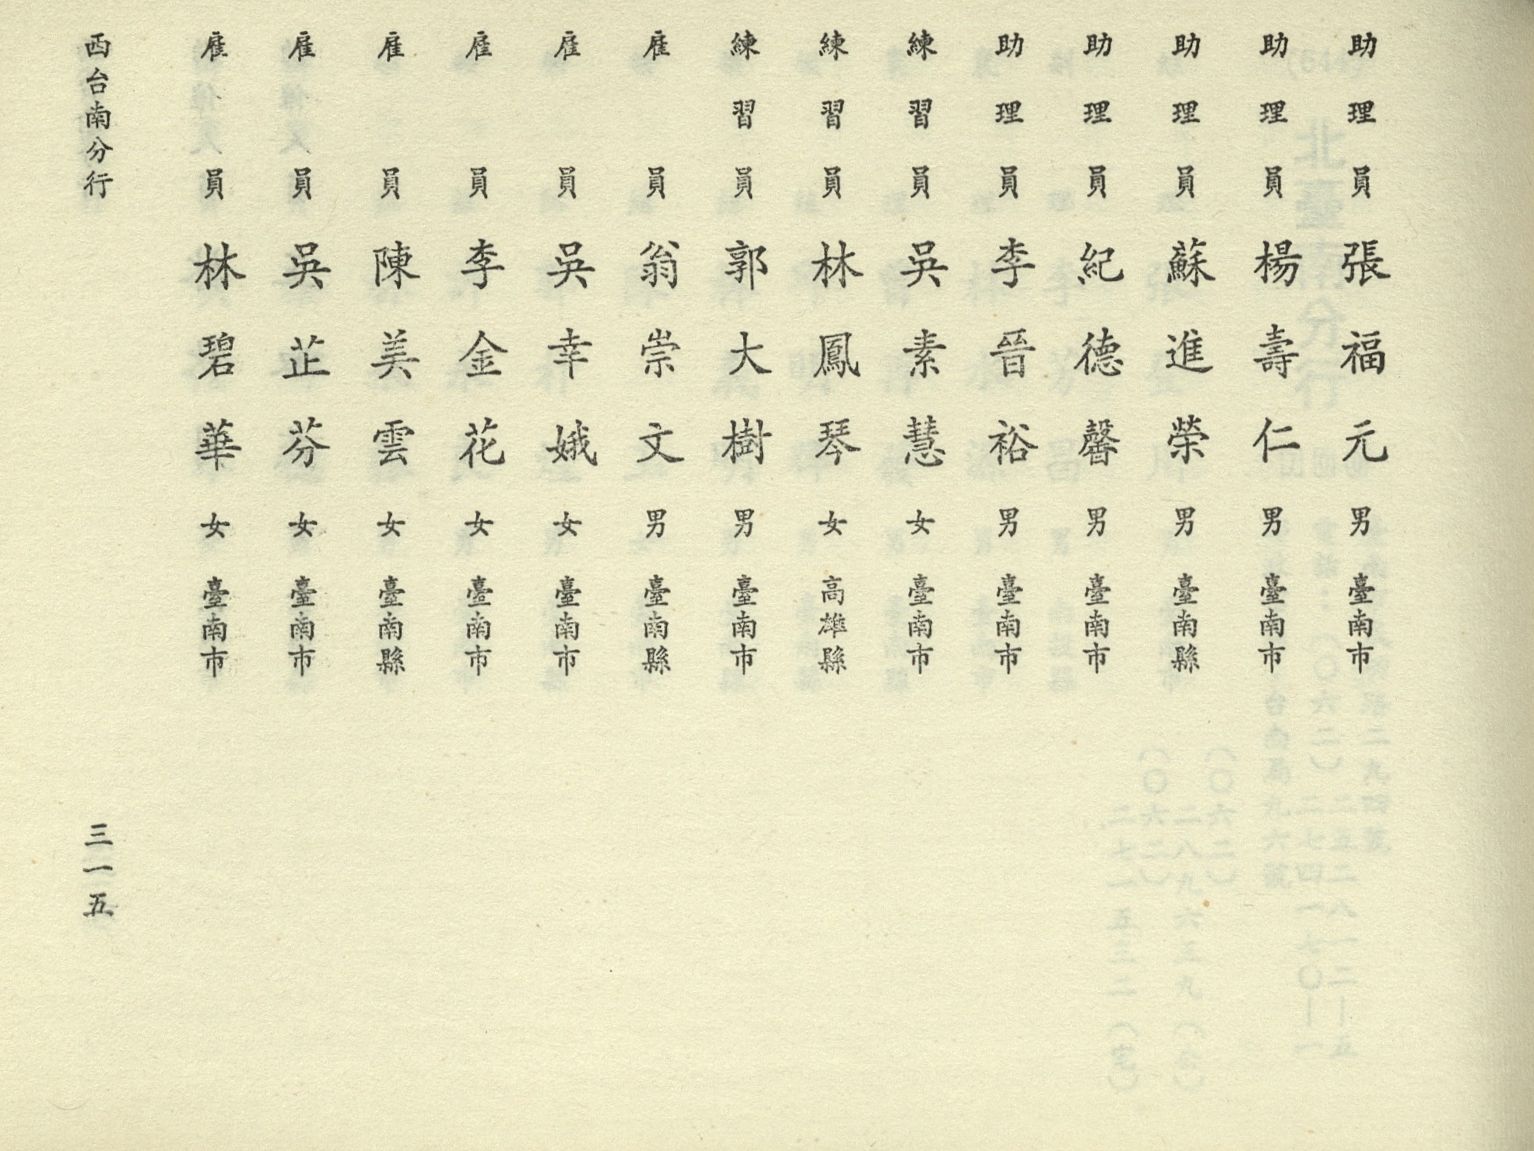 助理員 張福元 男 臺南市
助理員 楊壽仁 男 臺南市
助理員 蘇進榮 男 臺南縣
助理員 紀德馨 男 臺南市
助理員 李晉裕 男 臺南市
練習員 吳素慧 女 臺南市
練習員 林鳳琴 女 高雄縣
練習員 郭大樹 男 臺南市
雇員 翁崇文 男 臺南縣
雇員 吳幸娥 女 臺南市
雇員 李金花 女 臺南市
雇員 陳美雲 女 臺南縣
雇員 吳芷芬 女 臺南市
雇員 林碧華 女 臺南市
西台南分行
三一五